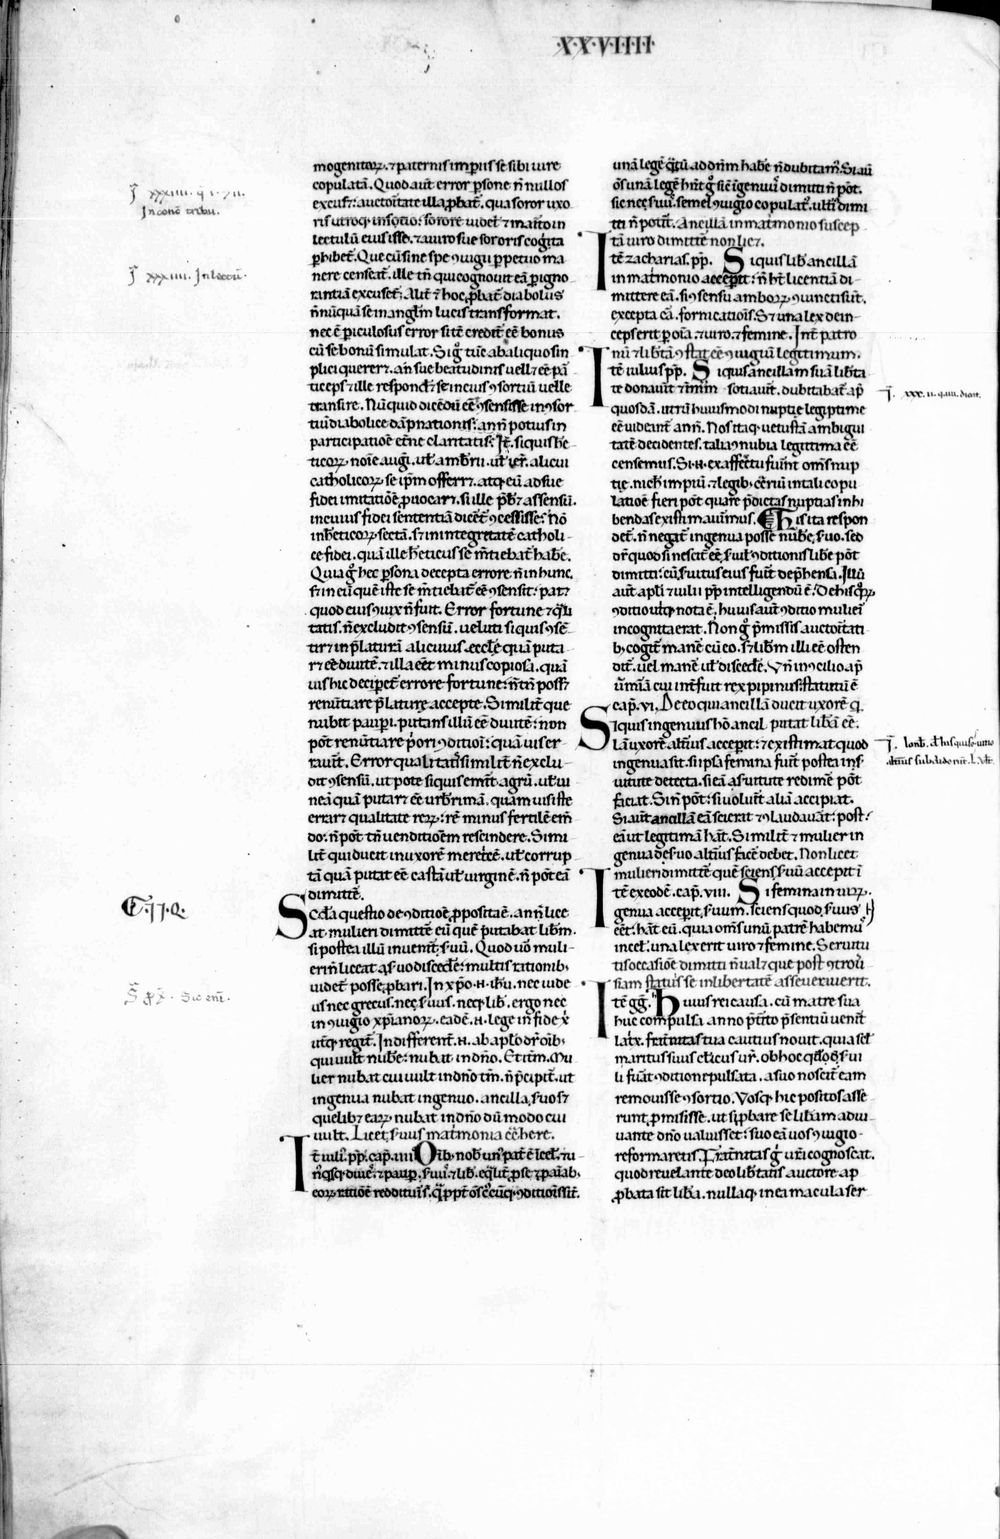 ·X·X·V·IIII·
mogenitoꝝ. ⁊ paternis imp̄iis se sibi uire
copulatā. Quod aut̄ error ꝑsone n̄ nullos
excuset: auctoritate illa ꝓbat̄. qua soror uxo
ris utroq; inscio: sorore uidet̄ ⁊ marito in
lectulū eius isse. ⁊ a uiro sue sororis cogita
ꝑhibet̄. Que cū sine spe ꝯiugii ꝑpetuo ma
nere censeat̄. ille tn̄ qui cognouit eā ꝑ igno
rantiā excusat̄. Alit̄ ⁊ hoc ꝓbat̄. diabolus
n̄nūquā se in angl̄m lucis transformat.
nec ē ꝑiculosus error si tc̄ credit̄ eē bonus
cū se bonū simulat. Si g̊ tūc ab aliquo sim
plici quereret̄. an sue beatudinis uellet eē pā
ticeps ⁊ ille responderet se in eius ꝯsortiū uelle
transire. Nūquid dicēdū eē ꝯsensisse in ꝯsor
tiū diabolice dāpnationis: an n̄ potius in
participatiōe et̄ne claritatis: It̄. si quis he
ticoꝝ noīe augꝰ. ul̄ ambrii. ul̄ ier. alicui
catholicoꝝ se ip̄m offerret. atq; eū ad sue
fidei imitatiōē ꝓuocaret. si ille p̄beret assensū.
in cuius fidei sententiā diceret̄ ꝯcessisse: Nō
in hēticoꝝ sectā. s; in integritatē catholi
ce fidei. quā ille hēticus se m̄tiebat̄ habē.
Quia g̊ hec ꝑsona decepta errore n̄ in hunc.
s; in eū quē iste se m̄tiebat̄ eē ꝯsensit: patet
quod eius ꝯiux n̄ fuit. Error fortune ⁊ qͣli
tatis. n̄ excludit ꝯsensū. ueluti si quis ꝯsē
tiret in p̄laturā alicuius eccl̄e quā puta
ret eē diuitē. ⁊ illa eēt minus copiosa. quā
uis hic decipet̄ errore fortune: n̄ tn̄ posset
renūtiare p̄lature accepte. Similit̄ que
nubit pauꝑi. putans illū eē diuitē: non
pōt renūtiare p̄ori ꝯditiōi: quāuis er
rauit. Error qualitatis similit̄ n̄ exclu
dit ꝯsensū. ut pote si quis emit̄ agrū. ul̄ ui
neā quā putaret eē ub̄rimā. quamuis iste
erraret qualitate rerū. re minus fertilē em
do: n̄ pōt tn̄ uenditioēm rescindere. Simi
lit̄ qui ducit in uxorē meretcē. ul̄ corrup
tā quā putat eē castā ul̄ uirginē. n̄ pōt eā
dimittē.
Scd̄a questio de ꝯditiōe ꝓposita ē. an n̄ lice
at mulieri dimittē eū quē putabat lib̄m.
si postea illū inuenit s̄uū. Quod uō muli
erin̄ liceat a s̄uo discedē: multis ratiōib;
uidet̄ posse ꝓbari. In xp̄o .n. ih̄u. nec iude
us nec grecus. nec s̄uus. neq; lib̄. ergo nec
in ꝯiugio xp̄ianoꝝ. eadē .n. lege in fide x̄
ut̄q; regit̄. Indifferent̄ .n. ab apl̄o dr̄ oīb;
qui uult nubē: nubat in dn̄o. Et iterū. Mu
lier nubat cui uult in dn̄o tm̄. n̄ p̄cipit̄. ut
ingenua nubat ingenuo. ancilla. s̄uo s;
quelib; earū nubat in dn̄o dū modo cui
uult. Licet s̄uus matͥmonia ꝯt̄here.
It̄ iulii p̄p. cap̄. iiii Oīb; nob̄ un̄ pat̄ ē i cel̄. ⁊ u
n̄q;sq; diues ⁊ pauꝑ. s̄uꝰ. ⁊ lib̄. eq̄lit̄ ꝓ se ⁊ ꝓ aīab;
eoꝝ ratiōē reddituri s̄. Q̄ ꝓpt̄ oēs cuiq; ꝯditiōis sit.
unā legē qͣ̄tū ad dn̄m habē n̄ dubitam̄. Si aū
oēs unā legē hn̄t g̊ sic īgenuꝰ dimitti n̄ pōt.
sic nec s̄uus. semel ꝯiugio copulatꝰ. ult̄ dimi
tti n̄ poterit. Ancillā in matͥmonio suscep
tā uiro dimittē non licet.
It̄ē zacharias. p̄p. Si quis lib̄ ancillā
in matͥmonio acceꝑit: n̄ h̄t licentiā di
mittere eā. si ꝯsensu amboꝝ ꝯiuncti sūt.
excepta cā. fornicatiōis. Set una lex dein
cepserit ꝑ oīa. ⁊ uiro. ⁊ femine. Int̄ patro
nū ⁊ lib̄tā ꝯstat eē ꝯiugiū legitimum.
It̄ē iulius p̄p. Si quis ancillam suā lib̄ta
te donauit ⁊ in m̄ sotiauit. dubitabat̄ ap̄
quosdā. utrū huius modi nuptie legiptime
eē uideant̄ an n̄. Nos itaq; uetustā ambigui
tatē decidentes. talia ꝯnubia legittima eē
censemus. Si .n. ex affectu fiunt om̄s nup
tie. nich̄ impiū. ⁊ legib; ꝯt̄riū in tali copu
latiōe fieri pōt quare p̄dictas nuptias inhi
bendas existimauimus. ¶ His ita respon
det̄. n̄ negat̄ ingenua posse nubē s̄uo. sed
dr̄ quod si nescit̄ eē s̄uil̄ ꝯditionis libe pōt
dimitti: cū s̄uitus eius fuit̄ dep̄hensa. Illū
aut̄ apl̄i ⁊ iulii p̄p intelligendū ē: De his q̊ꝝ
ꝯditio ut̄q; nota ē. huius aut̄ ꝯditio mulieri
incognita erat. Non g̊ p̄missis auctoritati
b; cogit̄ manē cū eo. s; lib̄m illi eē osten
dit̄. uel manē ul̄ discedē. Vn̄ in ꝯcilio ap̄
ūm̄iā cui int̄fuit rex pipinus statutū ē
cap̄. vi. De eo qui ancillā ducit uxorē q̄
Si quis ingenuus hō ancil putat lib̄ā eē.
lā uxorē alt̄ius acceꝑit: ⁊ existimat quod
ingenua sit. si ip̄sa femina fuit̄ postea in s̄
uitute detecta. si eā a s̄uitute redimē pōt
faciat. Si n̄ pōt: si uoluit̄ aliā accipiat.
Si aut̄ ancillā eā scierat ⁊ ꝯlaudauit: post
eā ut legitimā hāt. Similit̄ ⁊ mulier in
genua de s̄uo alt̄ius facē debet. Non licet
mulieri dimittē quē sciens s̄uū accepit ī
It̄ē ex eodē. cap̄. viii. Si femina in uirū.
genua acceꝑit s̄uum. sciens quod s̄uus
eēt: hāt eū. quia om̄s unū patrē habemꝰ
in cel̄. una lex erit uiro ⁊ femine. Seruitu
tis occasiōe dimitti n̄ ualet que post ꝯtrouer
siam status se in libertatē asseuerauerit.
It̄ē gg̊. huius rei causa. cū matre sua
huc compulsa anno p̄tito p̄sentiū uenit
latrix. frat̄nitas tua cautius nouit. quia sc̄l
maritus suus clericus ur̄. ob hoc qd̄ eos s̄ui
li fuat̄ ꝯditione pulsata. a suo noscit̄ eam
remouisse ꝯsortio. Vosq; hic positos asse
runt ꝓmisisse. ut si ꝓbare se lib̄am adiu
uante dn̄o ualuisset: suo eā uos ꝯiugio
reformaretis. Frat̄nitas g̊ ur̄a cognoscat.
quod reuelante deo lib̄tatis auctore ap
ꝓbata sit lib̄a. nullaq; in ea macula ser
J̄ xxxiiii. q̄ i. ⁊ ii.
In conc̄ tribu.
J̄ xxxiiii. In lectū.
C. II. Q.
S̄ Sic eni.
J̄. xxx. ii. q. iiii. dicit.